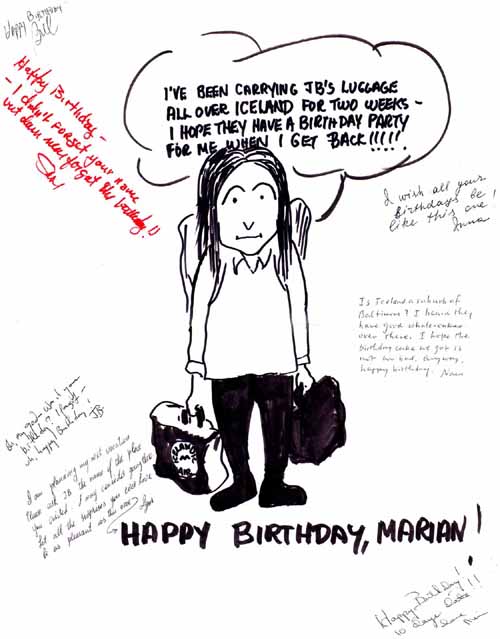 Happy Birthday
Bill
I'VE BEEN CARRYING JB'S LUGGAGE
ALL OVER ICELAND FOR TWO WEEKS-
I HOPE THEY HAVE A BIRTHDAY PARTY
FOR ME WHEN I GET BACK!!!!!
Happy Birthday-
I didn't forget your name
but darn near forgot the birthday!!
I wish all your
Birthdays be
like this one!
Inna
Is Iceland a suburb of
Baltimore? I heard they
have good whale-
over there. I hope the
birthday cake we got is
not too bad. Anyway,
happy birthday.
Oh my god- wasn't your
birthday? I forgot-
oh, happy Birthday!
JB
I am planning my next vacation
Please ask JB the name of the place
you visited. I may consider going there
Let all the surprises you ever have
be as pleasant as this one
HAPPY BIRTHDAY, MARIAN!
Happy Birthday!
10 days late!!
Love